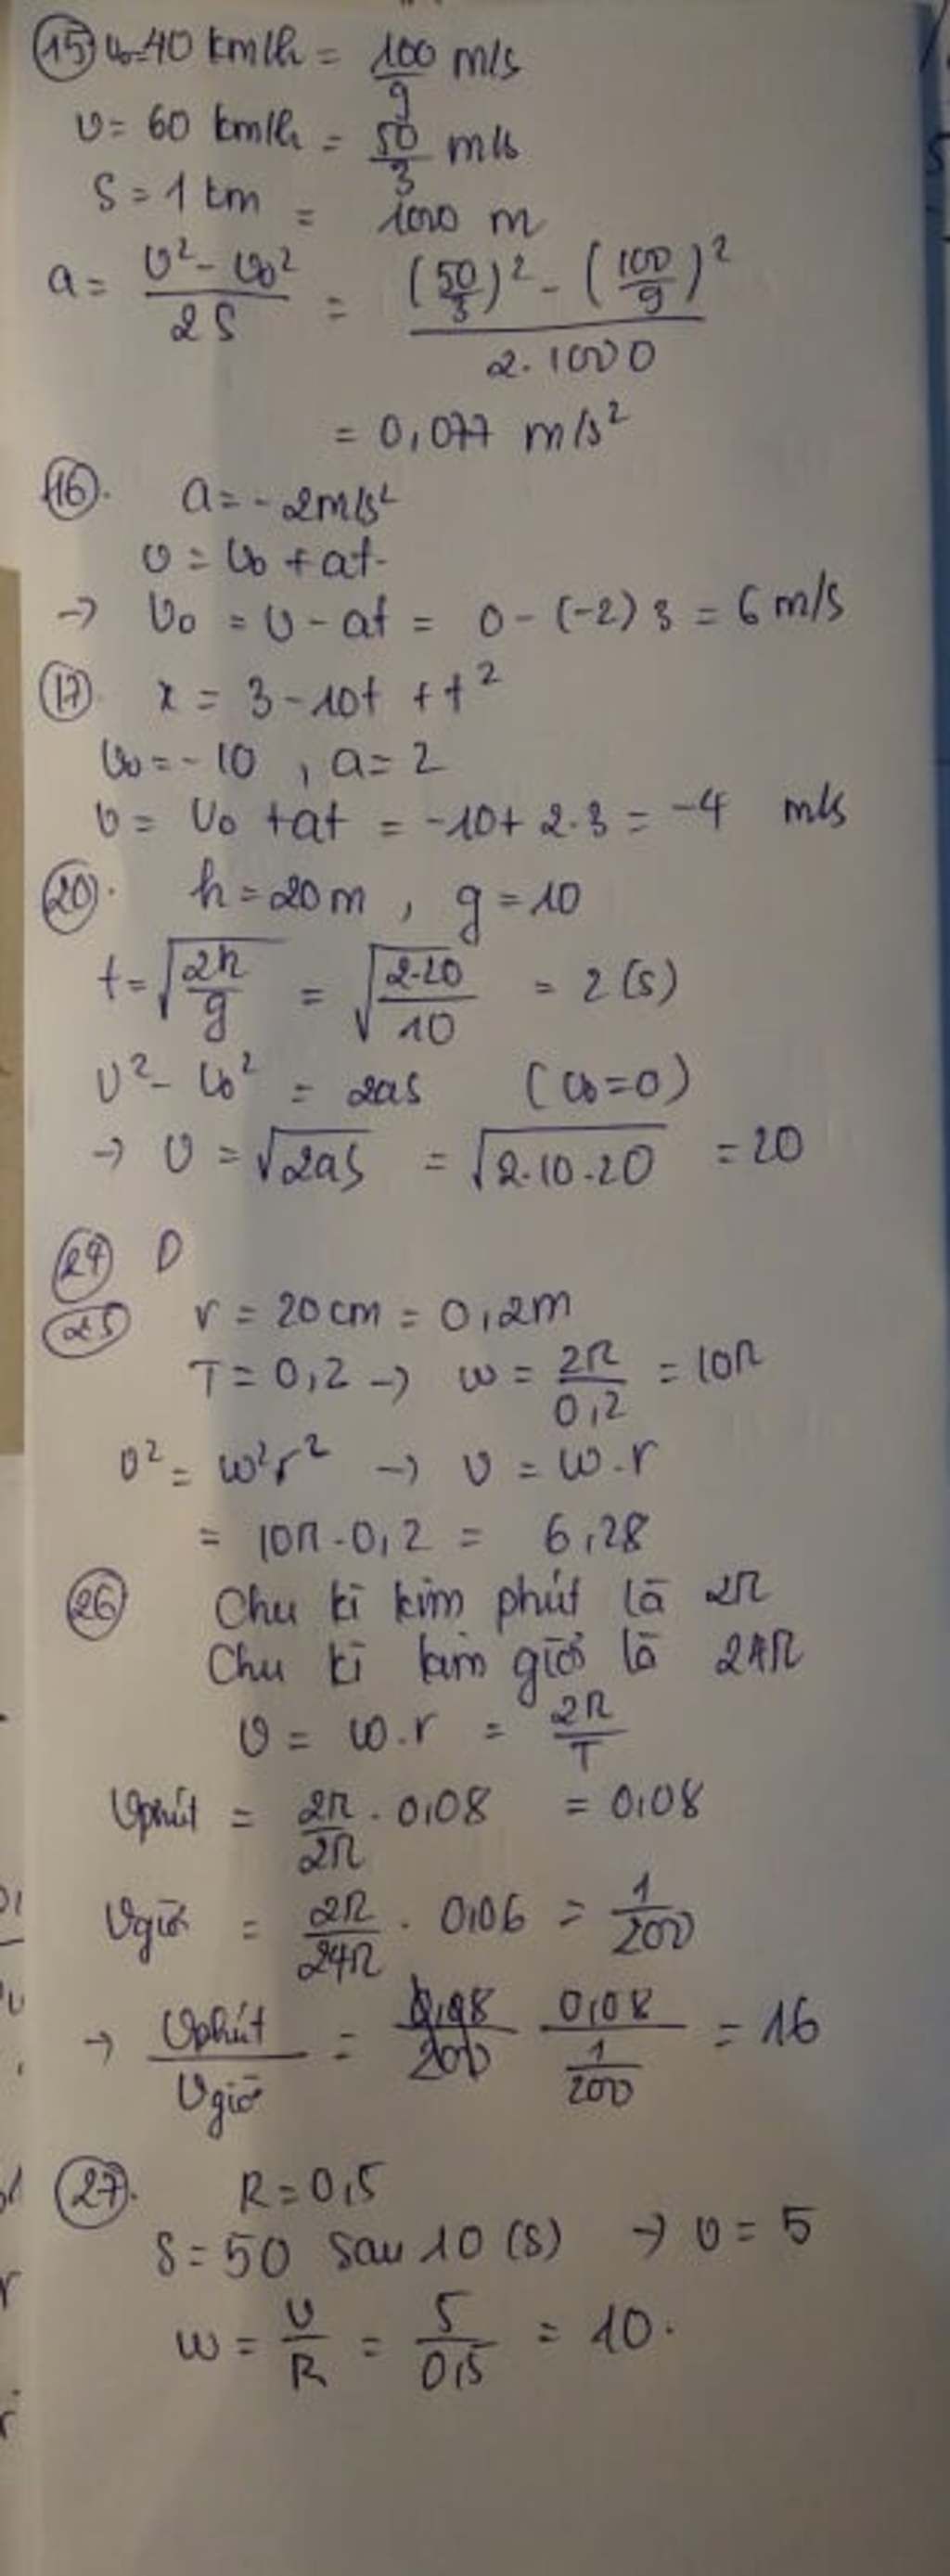 (15) v₀=40 km/h = 100/9 m/s
v = 60 km/h = 50/3 m/s
S = 1 km = 1000 m
a = (v² - v₀²)/(2S) = ((50/3)² - (100/9)²)/(2.1000)
= 0,077 m/s²
(16). a = -2m/s²
v = v₀ + at
→ v₀ = v - at = 0 - (-2) 3 = 6 m/s
(17). x = 3 - 10t + t²
v₀ = -10 , a = 2
v = v₀ + at = -10 + 2.3 = -4 m/s
(20). h = 20m , g = 10
t = √(2h/g) = √(2.20/10) = 2 (s)
v² - v₀² = 2aS (v₀ = 0)
→ v = √(2aS) = √(2.10.20) = 20
(24) D
(25) r = 20cm = 0,2m
T = 0,2 → ω = 2π/0,2 = 10π
v² = ω²r² → v = ω.r
= 10π.0,2 = 6,28
(26) Chu kì kim phút là 2π
Chu kì kim giờ là 24π
v = ω.r = 2π/T
vphút = 2π/2π . 0,08 = 0,08
vgiờ = 2π/24π . 0,06 = 1/200
→ vphút/vgiờ = 0,08/200 0,08/(1/200) = 16
(27). R = 0,5
S = 50 sau 10 (s) → v = 5
ω = v/R = 5/0,5 = 10.